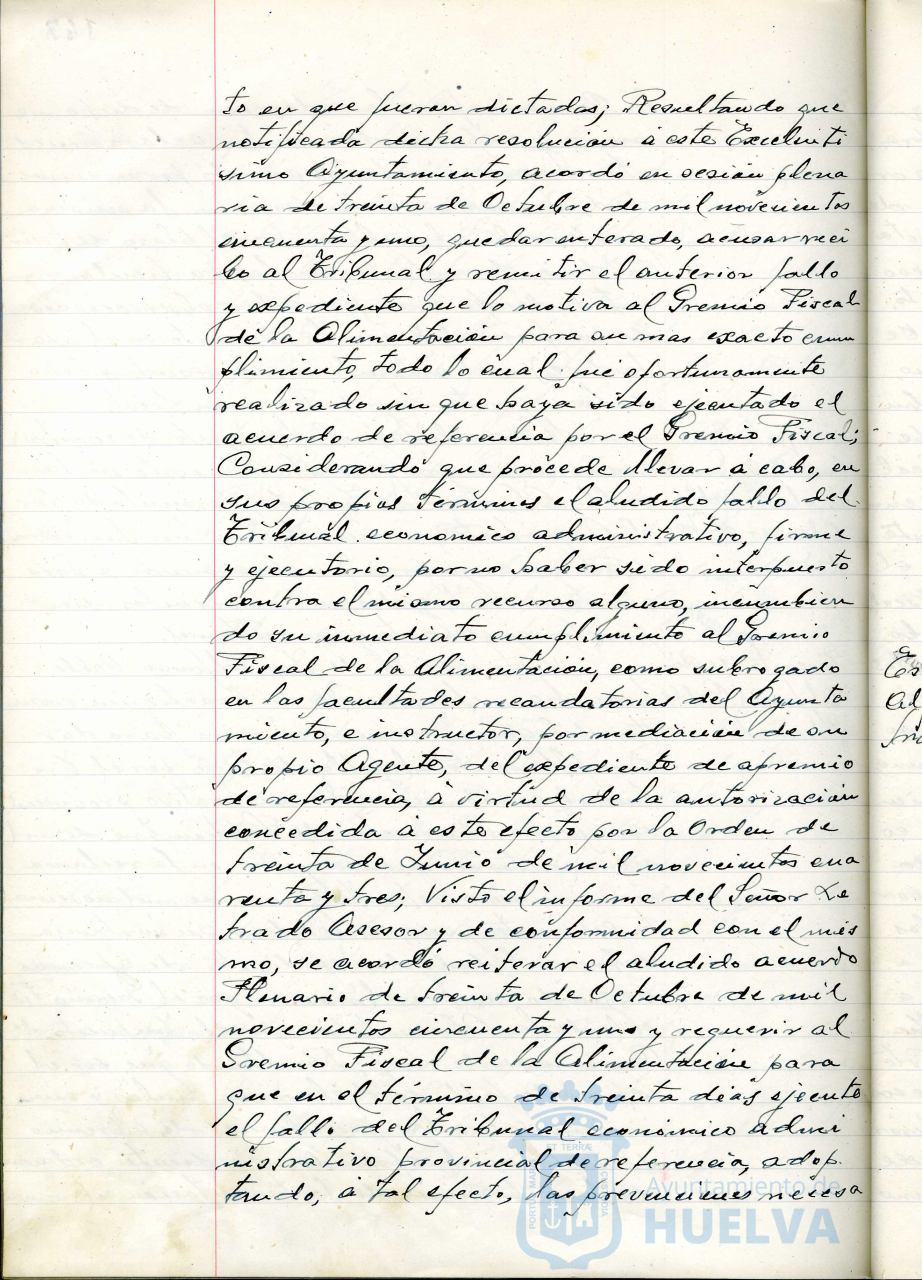 to en que fueran dictadas; Resultando que
notificada dicha resolución á este Excelentí
simo Ayuntamiento, acordó en sesión plena
ria de treinta de Octubre de mil novecientos
cincuenta y uno, quedar enterado, acusar reci
bo al Tribunal y remitir el anterior fallo
y expediente que lo motiva al Gremio Fiscal
de la Alimentación para su mas exacto cum
plimiento, todo lo cual fué oportunamente
realizado sin que haya sido ejecutado el
acuerdo de referencia por el Gremio Fiscal;
Considerando que procede llevar á cabo, en
sus propios términos el aludido fallo del
Tribunal economico administrativo, firme
y ejecutorio, por no haber sido interpuesto
contra el mismo recurso alguno, incumbien
do su inmediato cumplimiento al Gremio
Fiscal de la Alimentación, como subrogado
en las facultades recaudatorias del Ayunta
miento, e instructor, por mediación de su
propio Agente, del expediente de apremio
de referencia, á virtud de la autorización
concedida á este efecto por la Orden de
treinta de Junio de mil novecientos cua
renta y tres; Visto el informe del Señor Le
trado Asesor y de conformidad con el mis
mo, se acordó reiterar el aludido acuerdo
Plenario de treinta de Octubre de mil
novecientos cincuenta y uno y requerir al
Gremio Fiscal de la Alimentación para
que en el término de treinta dias ejecute
el fallo del Tribunal económico admi
nistrativo provincial de referencia, adop
tando, á tal efecto, las prevenciones necesa
Es
al
Ayuntamiento de
HUELVA